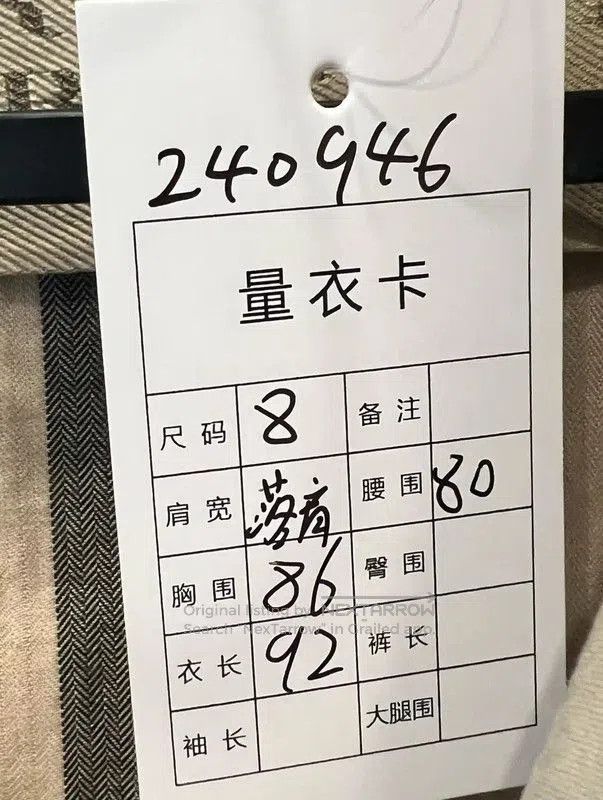 240946
量衣卡
尺码 8 备注
肩宽 落肩 腰围 80
胸围 86 臀围
Original listing by NEXTARROW
Search "NexTarrow" in Grailed app.
衣长 92 裤长
袖长 大腿围